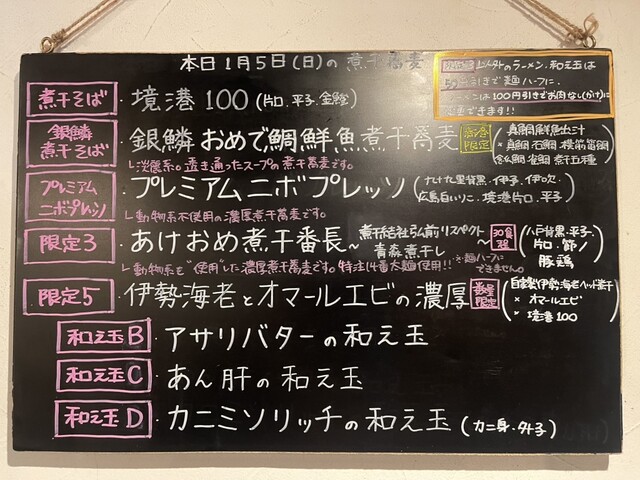 本日1月5日(日)の煮干蕎麦
以外のラーメン、和え玉は
50円引きで麺ハーフに、
100円引きでお肉なし(かけ)に
できます!!
煮干そば・境港100(片口.平子.金鯵)
銀鱗煮干そば・銀鱗おめで鯛鮮魚煮干蕎麦
限定
真鯛鮮魚出汁
真鯛 石鯛
煮干五種
淡麗系。透き通ったスープの煮干蕎麦です。
プレミアムニボプレッソ・プレミアムニボプレッソ
背黒・伊子・伊吹・
広島白いりこ・境港片口、平子)
動物系不使用の濃厚煮干蕎麦です。
限定3・あけおめ煮干番長~煮干結社弘前リスペクト青森煮干し~
30食限定
(八戸背黒・平子・
片口・節/
豚鶏)
動物系を"使用"した濃厚煮干蕎麦です。特注14番太麺使用!!※麺ハーフにできません。
限定5・伊勢海老とオマールエビの濃厚
数量限定
(自家製伊勢海老ヘッド煮干
× オマールエビ
× 境港100)
和え玉B・アサリバターの和え玉
和え玉C・あん肝の和え玉
和え玉D・カニミソリッチの和え玉(カニ身・外子)